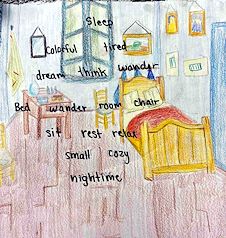 Sleep
Colorful tired
dream think wander
Bed wander room chair
sit rest relax
small cozy
nightime